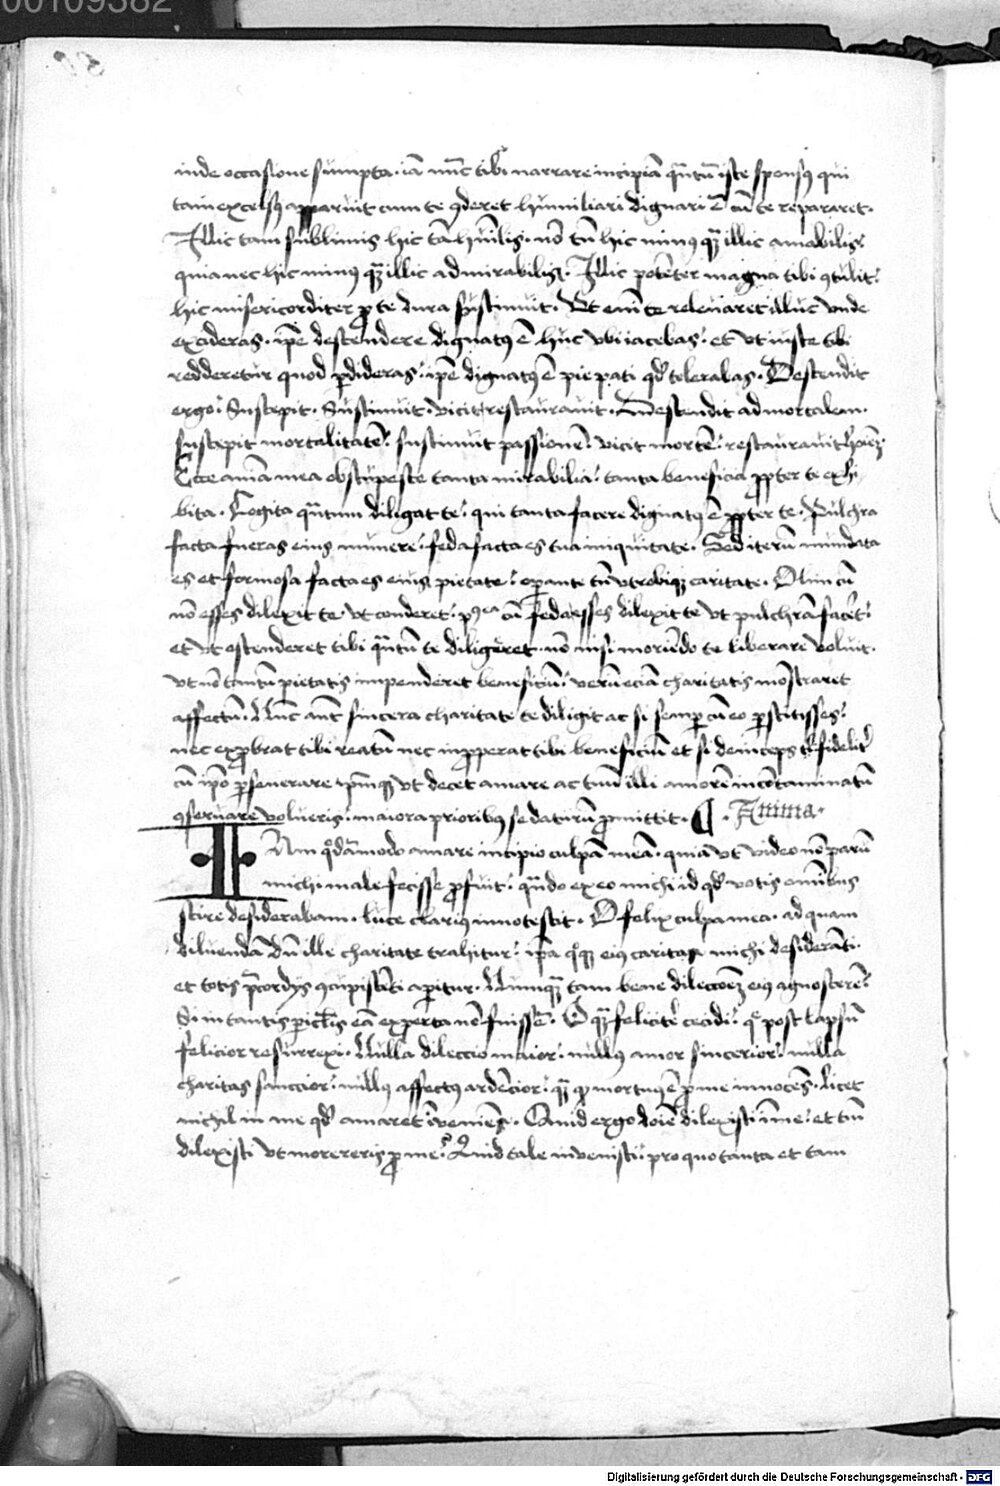 00109382
inde occasione sumpta · iã nũc tibi narrare incipiã qñtũ iste sponsꝰ qui
tam excelsꝰ apparuit cum te ꝯderet humiliari dignatꝰ ẽ cũ te repararet ·
Illic tam sublimis hic tã hũilis · nõ tñ hic minꝰ qꝫ illic amabilis
quia nec hic minꝰ qꝫ illic admirabilis · Illic potẽter magna tibi ꝯtulit
hic misericorditer ꝓ te dura sustinuit · Ut eni te releuaret illuc vnde
cecideras · ipẽ descendere dignatꝰ ẽ huc vbi iacebas · et vt iuste tibi
redderetur quod ꝑdideras · ipẽ dignatꝰ ẽ pie pati qđ tolerabas · Descendit
ergo · Suscepit · Sustinuit · vicit · restaurauit · Descendit ad mortalem ·
suscepit mortalitatẽ · sustinuit passionẽ · vicit mortẽ · restaurauit hoiẽꝫ
Ecce aniã mea obstupesce tanta mirabilia · tanta beneficia ꝓpter te exhi
bita · Cogita qñtum diligat te · qui tanta facere dignatꝰ ẽ ꝓpter te · Pulchra
facta fueras eius munere · feda facta es tua iniquitate · Sed iterũ mundata
es et formosa facta es eius pietate · oꝑante tñ vtrobiqꝫ caritate · Olim cũ
nõ esses dilexit te vt conderet · pꝰea cũ feda esses dilexit te vt pulchrã facẽt
et vt ostenderet tibi qñtũ te diligeret · nõ nisi moriẽdo te liberare voluit ·
vt nõ tantũ pietatis impenderet beneficiũ · verũ eciã charitatis mõstraret
affectũ · Nũc aũt sincera charitate te diligit ac si semꝑ cũ eo ꝑstitisses
nec exprobrat tibi reatũ nec inproperat tibi beneficiũ et si deinceps tñ fidelit̃
cũ ipõ ꝑseuerare ipm̃qꝫ vt decet amare ac tuũ illi amorẽ incõtaminatũ
ꝯseruare volueris · maiora prioribus se daturũ ꝓmittit · ¶ · Anima ·
IAm qđdãmodo amare incipio culpã meã · quia vt video nõ parũ
michi male fecisse ꝓfuit · qñdo ex eo michi id qđ votis omibus
scire desiderabam · luce clarius innotescit · O felix culpa mea · ad quam
diluendã dũ ille charitate trahitur · ipã qꝫ eius caritas michi desiderãti
et totis p̃cordys ꝯcupiscẽti aꝑitur · Nunqꝫ tam bene dileccõeꝫ eius agnoscerẽ
Si in tantis periclis eã experta nõ fuissẽ · O qꝫ feliciter cecidi · q̃ post lapsũ
felicior resurrexi · Nulla dileccio maior · nullus amor sincerior · nulla
charitas sanccior · nullus affectus ardẽcior · qꝫ qꝫ mortuus ẽ ꝓ me innocẽs · licet
nichil in me qđ amaret ĩueniẽs · Quid ergo dñe dilexisti ĩ me · et tñ
dilexisti vt morereris ꝓ me · Quid tale inuenisti · pro quo tanta et tam
Digitalisierung gefördert durch die Deutsche Forschungsgemeinschaft · DFG